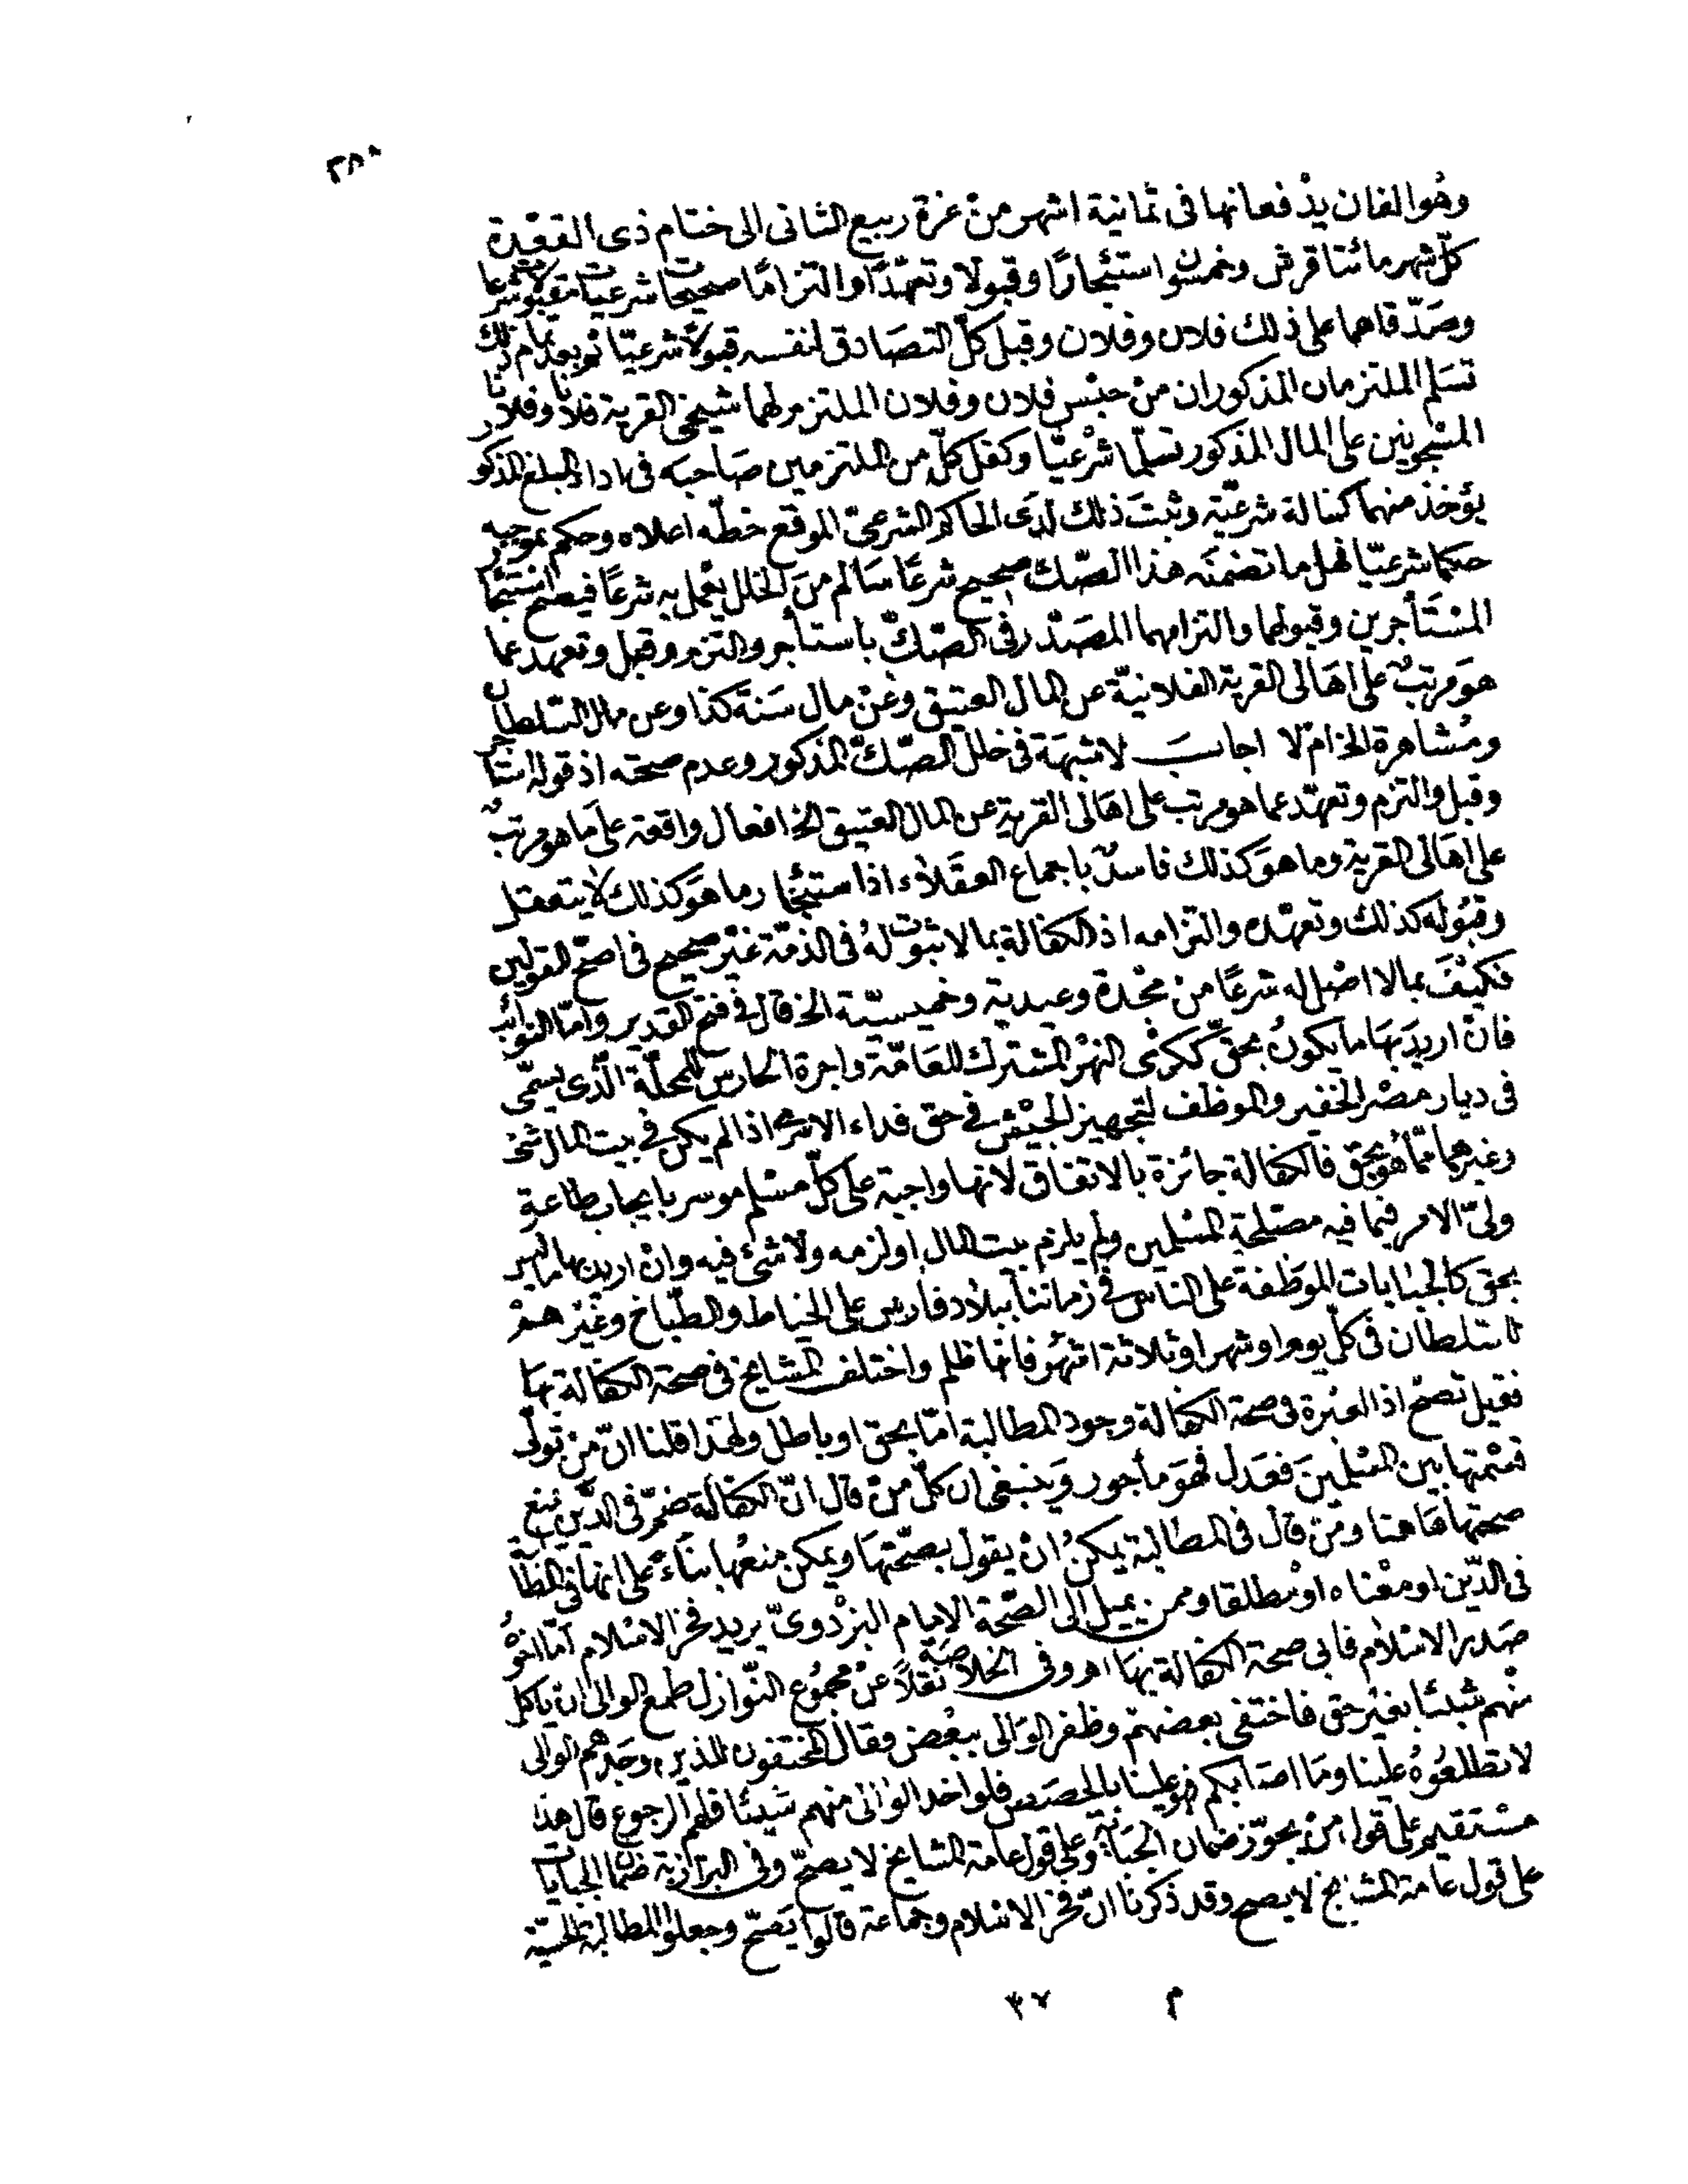 ٢٨٩
وهُوا لفان يدْ فعانها فى ثمانية اشهر منْ غرة ربيع الثانى الى ختام ذى القعْدة
كلّ شهر مائتا قرش وخمسون استئجارًا وقبولا وتعهّدًا والتزامًا صحيحات شرعيات مقبولات شرعا
وصَدّقاهما على ذلك فلان وفلان وقبل كلّ التصَادق لنفسه قبولاً شرعيّا ثم بعد تمام ذلك
تسَلم الملتزمان المذكوران منْ حبْس فلان وفلان الملتزم لهما شيخى القرية فلانا وفلانا
المسْجونين على المال المذكور تسلّما شرْعيّا وكفل كلّ من الملتزمين صَاحبه فى اداء المبلغ المذكور
يؤخذ منهما كفالة شرعيّة وثبتَ ذلك لدَى الحاكم الشرعىّ الموقع خطّه اعلاه وحكم بموجبه
حكما شرعيّا فهل ما تضمنَه هذا الصّك صحيح شرعًا سَالم منَ الخلل يعْمل به شرعًا فيصحّ استئجار
المسْتَأجرين وقبولهما والتزامهما المصَدّر فى الصّكّ باستأجر والتزم وقبل وتعهد عما
هوَ مرتبٌ على اهَالى القرية الفلانيّة عن المال العتيق وعَنْ مال سَنَة كذا وعن مال السّلطان
ومُشاهرة الخ ام لا اجابَ لا شبهَة فى خلل الصّكّ المذكور وعدم صحته اذ قوله استأجر
وقبل والتزم وتعهّد عما هو مرتب على اهَالى القرية عن المال العتيق الخ افعال واقعة على مَا هو مرتبٌ
على اهَالى القرية وما هوَ كذلك فاسدٌ باجماع العقَلاء اذ استئجار ما هوَ كذلك لا يتعقل
وقبُوله كذلك وتعهّده والتزامه اذ الكفالة بما لا ثبوت لهُ فى الذمّة غيْر صحيح فى اصحّ القولين
فكيْفَ بمالا اصْل له شرعًا من مجْدة وعيدية وخميسيّة الخ قال فى فتح القدير وامّا النوائب
فانْ اريدَ بهَا ما يكونُ بحقّ ككرْى النهْر المشترك للعَامّة واجرة الحارس للمحلّة الّذى يسمّى
فى ديار مصْر الخفير والموظف لتجهيز الجيْش فى حق فداء الاسْرى اذا لم يكن فى بيت المال شئ
وغيرهما ممّا هو بحق فالكفالة جائزة بالاتفاق لانها واجبة على كلّ مسْلم موسر بايجاب طاعة
ولىّ الامر فيما فيه مصْلحة المسْلمين ولم يلزم بيت المال او لزمه ولا شئ فيه وانْ اريد بها ما ليس
بحق كالجبايات الموَظفة على الناس فى زماننا ببلاد فارس على الخياط والطّباخ وغيْر همْ
للسّلطان فى كلّ يوم او شهر او ثلاثة اشهُر فانها ظلم واختلف المشايخ فى صحة الكفالة بها
فقيل تصحّ اذ العبْرة فى صحة الكفالة وجود المطالبة امّا بحق او باطل ولهَذا قلنا انّ منْ تولّى
قسْمتها بين المسْلمينَ فعَدل فهوَ مأجور وَينبغى ان كلّ منْ قال انّ الكفالَة ضمّ فى الدّين يمنع
صحتها هَاهنا ومَن قال فى المطالبة يمكنُ انْ يقول بصحّتهَا ويمكن منعُها بنَاءً على انها فى المطالبة
فى الدّين او معْناه او مْطلقا وممن يميل الى الصّحة الامام البزْدوىّ يريد فخر الاسْلام امّا اخوُه
صَدر الاسْلام فابى صحة الكفالة بهَا اهـ وفى الخلاصَة نقلاً عنْ مجمُوع النّوازل طمع الوالى ان ياكل
منْهم شيئا بغيْر حق فاختفى بعضهمْ وظفر الوَالى ببعْض وقال المختفون للذين وجَدهم الوالى
لا تطلعُوهُ علينا ومَا اصَابكم فهو علينا بالحصَص فلو اخذ الوالى منهم شيئا فلهم الرجوع قال هذا
مسْتقيم على قول منْ يجوّز ضمان الجبَاية وعلى قول عامة المشايخ لا يصحّ وفى البزازية ضمان الجبايات
على قول عامة المشايخ لا يصح وقد ذكرنا انّ فخر الاسْلام وجماعة قالوا يَصحّ وجعلوا المطالبة الحسّيّة
م ٣٧